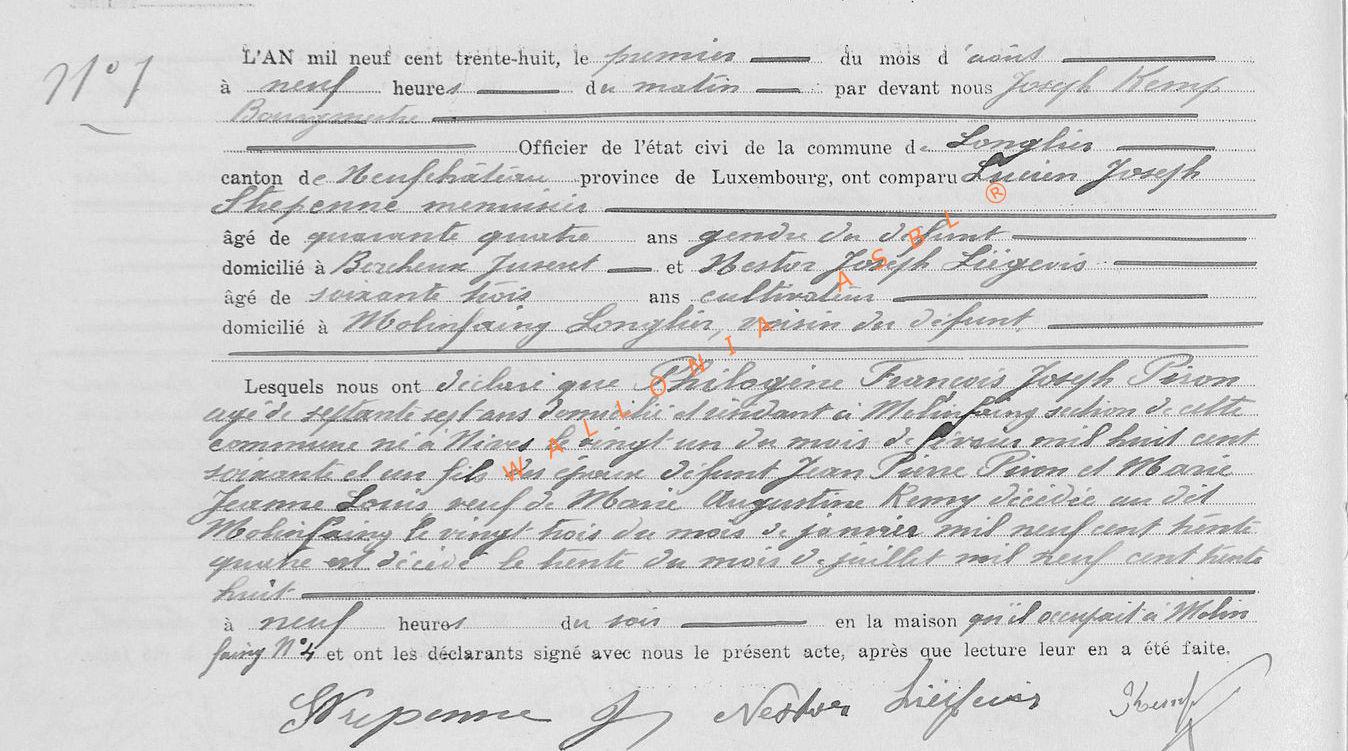 N° 7
L'AN mil neuf cent trente-huit, le premier du mois d'août
à neuf heures du matin par devant nous Joseph Kemp
Bourgmestre
Officier de l'état civi de la commune de Longlier
canton de Neufchâteau province de Luxembourg, ont comparu Lucien Joseph
Strepenne menuisier
âgé de quarante quatre ans gendre du défunt
domicilié à Bercheux Juseret et Nestor Joseph Liégeois
âgé de soixante trois ans cultivateur
domicilié à Molinfaing Longlier, voisin du défunt
Lesquels nous ont déclaré que Philogène François Joseph Piron
agé de septante sept ans domicilié et résidant à Molinfaing section de cette
commune né à Nives le vingt un du mois de février mil huit cent
soixante et un fils des époux défunt Jean Pierre Piron et Marie
Jeanne Louis veuf de Marie Augustine Remy décédée au dit
Molinfaing le vingt trois du mois de janvier mil neuf cent trente
quatre est décédé le trente du mois de juillet mil neuf cent trente
huit
à neuf heures du soir en la maison qu'il occupait à Molin
faing N° 4 et ont les déclarants signé avec nous le présent acte, après que lecture leur en a été faite.
Strepenne J Nestor Liégeois Kemp
WALLONIA ASBL ®